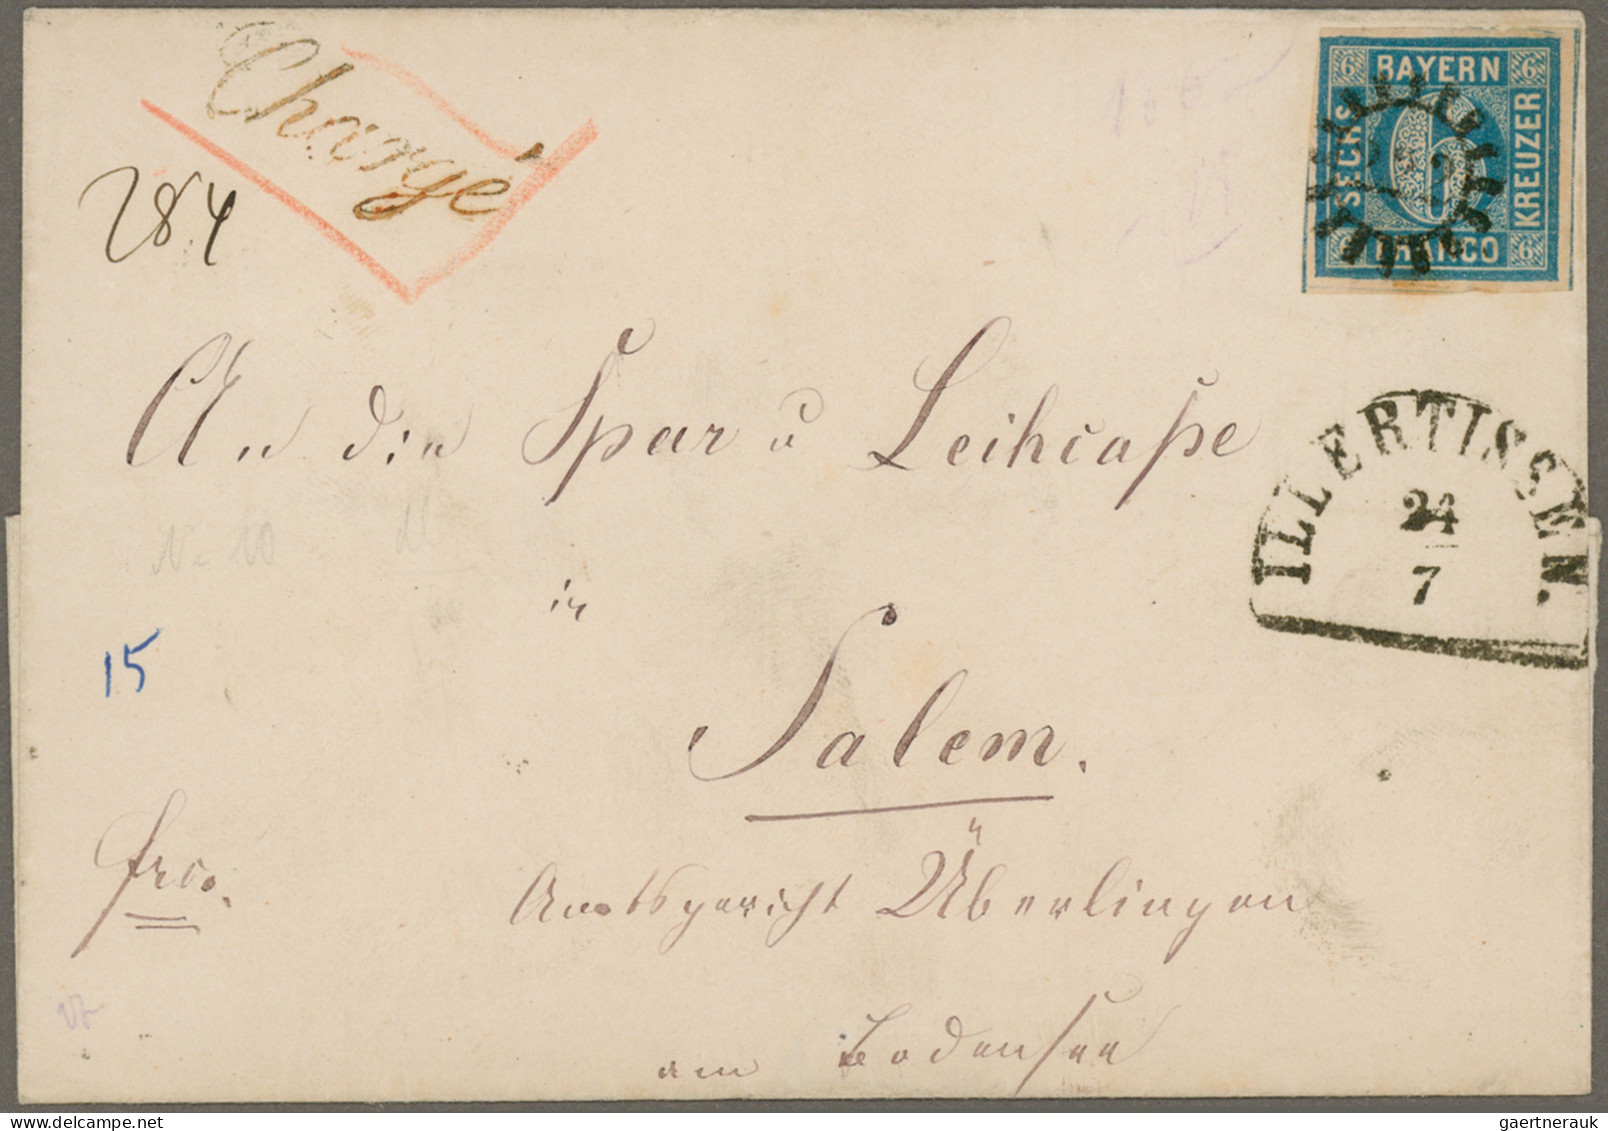 Chargé
284
6 BAYERN 6
SECHS
6
KREUZER
6 FRANCO 6
An die Spar u Leihcaße
ILLERTISSEN.
24
7
in
15
Salem.
frco.
Amtsgericht Überlingen
am Bodensee
gaertnerauk@delcampe.net